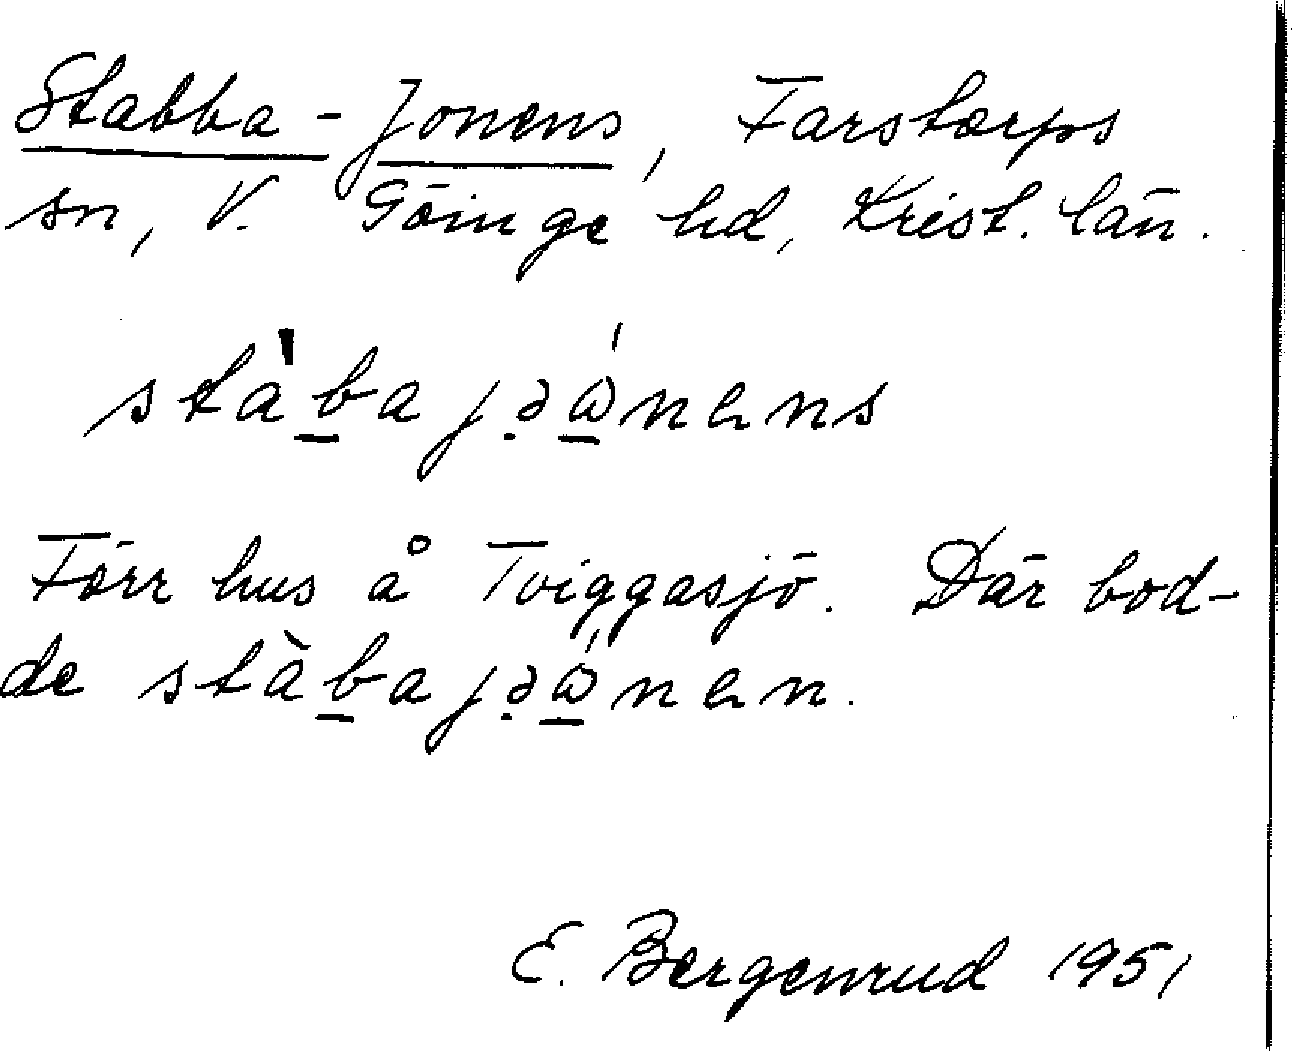 Stabba-Jonens, Farstorps
sn, V. Göinge hd, Krist. län.
stàba jəώnens
Förr hus å Tviggasjö. Där bod-
de stàba jəώnen.
E. Bergenrud 1951